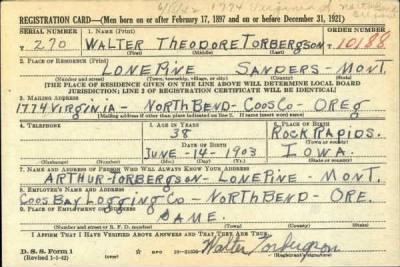 6/4/42 1774 Virginia St North Bend
REGISTRATION CARD—(Men born on or after February 17, 1897 and on or before December 31, 1921)
SERIAL NUMBER 1. NAME (Print) ORDER NUMBER
T 270 WALTER THEODORE TORBERGSON 10188
(First) (Middle) (Last)
2. PLACE OF RESIDENCE (Print)
LONEPINE SANDERS - MONT.
(Number and street) (Town, township, village, or city) (County) (State)
[THE PLACE OF RESIDENCE GIVEN ON THE LINE ABOVE WILL DETERMINE LOCAL BOARD
JURISDICTION; LINE 2 OF REGISTRATION CERTIFICATE WILL BE IDENTICAL]
3. MAILING ADDRESS
1774 VIRGINIA - NORTH BEND - COOS CO - OREG
[Mailing address if other than place indicated on line 2. If same insert word same]
4. TELEPHONE 5. AGE IN YEARS 6. PLACE OF BIRTH
38 ROCK RAPIDS.
DATE OF BIRTH (Town or county)
JUNE - 14 - 1903 IOWA.
(Exchange) (Number) (Mo.) (Day) (Yr.) (State or country)
7. NAME AND ADDRESS OF PERSON WHO WILL ALWAYS KNOW YOUR ADDRESS
ARTHUR - TORBERGSON - LONEPINE - MONT.
8. EMPLOYER'S NAME AND ADDRESS
COOS BAY LOGGING CO - NORTH BEND - ORE.
9. PLACE OF EMPLOYMENT OR BUSINESS
SAME.
(Number and street or R. F. D. number) (Town) (County) (State)
I AFFIRM THAT I HAVE VERIFIED ABOVE ANSWERS AND THAT THEY ARE TRUE.
D. S. S. Form 1
(Revised 1-1-42) (over) Walter Torbergson
(Registrant's signature)